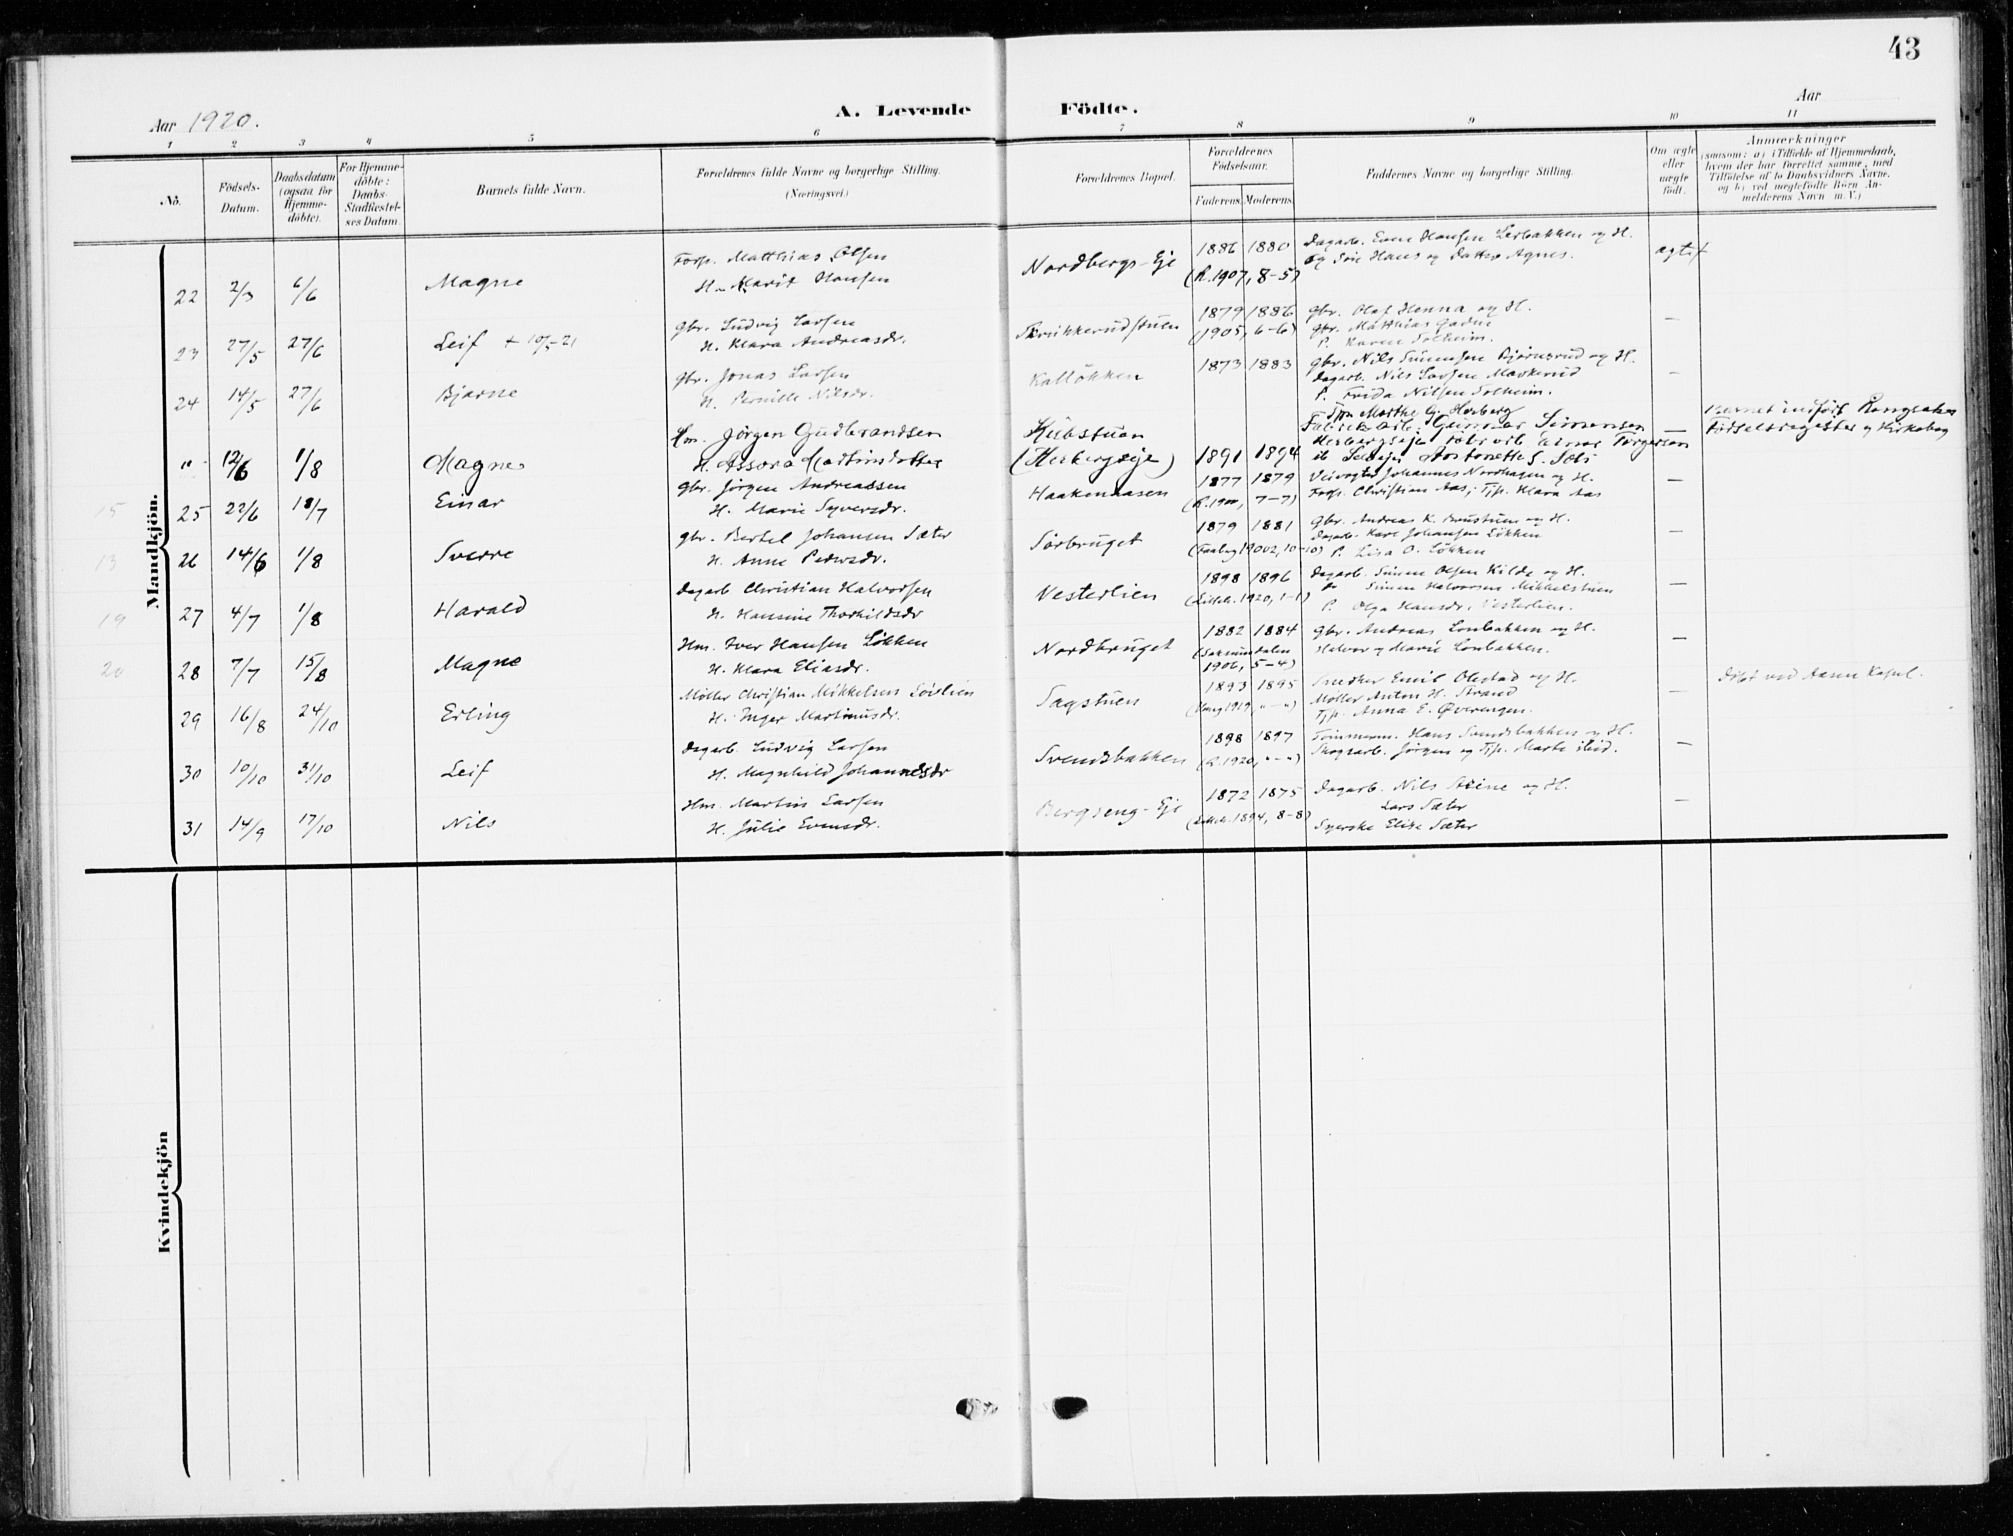 43
Aar 1920.
A. Levende Födte.
Aar
1 2 3 4 5 6 7 8 9 10 11
No.
Födsels-Datum.
Daabsdatum (ogsaa for Hjemmedöbte).
For Hjemmedöbte: Daabs-Stadfæstelses Datum.
Barnets fulde Navn.
Forældrenes fulde Navne og borgerlige Stilling. (Næringsvei.)
Forældrenes Bopæl.
Forældrenes Födselsaar.
Faderens. Moderens.
Faddernes Navne og borgerlige Stilling.
Om ægte eller uægte födt.
Anmerkninger
(saasom: a) i Tilfælde af Hjemmedaab,
hvem der har forrettet samme, med
Tilföielse af to Daabsvidners Navne,
og b) ved uægtefödte Börn An-
melderens Navn m. V.)
Mandkjön.
Forp. Matthias Olsen
22 2/3 6/6 Magne H. Marit Hansen
Nordbergs-Eje 1886 1880
(R. 1907, 8-5)
Dagarb. Even Hansen Lerbakken og H.
og Søn Hans og Datter Agnes.
ægte
Gbr. Ludvig Larsen
23 27/5 27/6 Leif + 10/5-21 H. Klara Andreasdr.
1879 1886
(1905, 6-6)
Gbr. Olaf Henna og H.
Gbr. Matthias
P. Karen Solheim.
—
Gbr. Jonas Larsen
24 14/5 27/6 Bjarne H. Pernille Nilsdr.
Kalløkken 1873 1883
Gbr. Nils Simensen Bjørnerud og H.
Dagarb. Nils Larsen Maskerud
P. Frida Nilsen Solheim.
—
Hm. Jørgen Gudbrandsen
" 12/6 1/8 Magne H. Assora Martinsdatter
Kubstuen
(Herbergseje) 1891 1894
Tjp. Marthe G. Herberg
Fabrikarb. Gunnar Simensen
—
Barnet indført Ringsaker
Fødselsregister og Kirkebog
15
Gbr. Jørgen Andreassen
25 22/6 18/7 Einar H. Marie Syversdr.
Haakenaasen 1877 1879
(R. 1900, 7-7)
Veivogter Johannes Nordhagen og H.
Forp. Christian Aas; Tjp. Klara Aas
—
13
Gbr. Bertel Johansen Sæter
26 14/6 1/8 Sverre H. Anne Pedersdr.
Sørbruget 1879 1881
Gbr. Andreas K. Brustuen og H.
Dagarb. Karl Johansen Løkken
P. Lisa O. Løkken
—
19
Dagarb Christian Halvorsen
27 4/7 1/8 Harald H. Hansine Thorkildsdr
Vesterlien 1898 1896
(Lilleh. 1920, 1-1)
Dagarb. Simen Olsen Kilde og H.
Do Simen Halvorsen Mikkelstuen
P. Olga Hansdr. Vesterlien.
—
20
Hm. Iver Hansen Løkken
28 7/7 15/8 Magne H. Klara Eliasdr.
Nordbruget 1882 1884
(Saksumdalen
1906, 5-4)
Gbr. Andreas Lonbakken og H.
Halvor og Marie Lonbakken.
—
Møller Christian Mikkelsen Sørlien
29 16/8 24/10 Erling H. Inger Martinusdr.
Sagstuen 1893 1895
Snedker Emil Olestad og H.
Møller Anton H. Strand
Tjp. Anna E. Øverengen.
—
Døbt ved Aasen Kapel.
Dagarb. Ludvig Larsen
30 10/10 31/10 Leif H. Magnhild Johannesdr
Svendsbakken 1898 1897
(R. 1920, "-")
Tømmerm. Hans Svendsbakken og H.
Skogsarb. Jørgen og Tjp. Marte ibid.
—
Hm. Martin Larsen
31 14/9 17/10 Nils H. Julie Evensdr.
Bergseng-Eje 1872 1875
(Lilleh. 1894, 8-8)
Dagarb. Nils Stene og H.
Lars Sæter
Syerske Elise Sæter
—
Kvindekjön